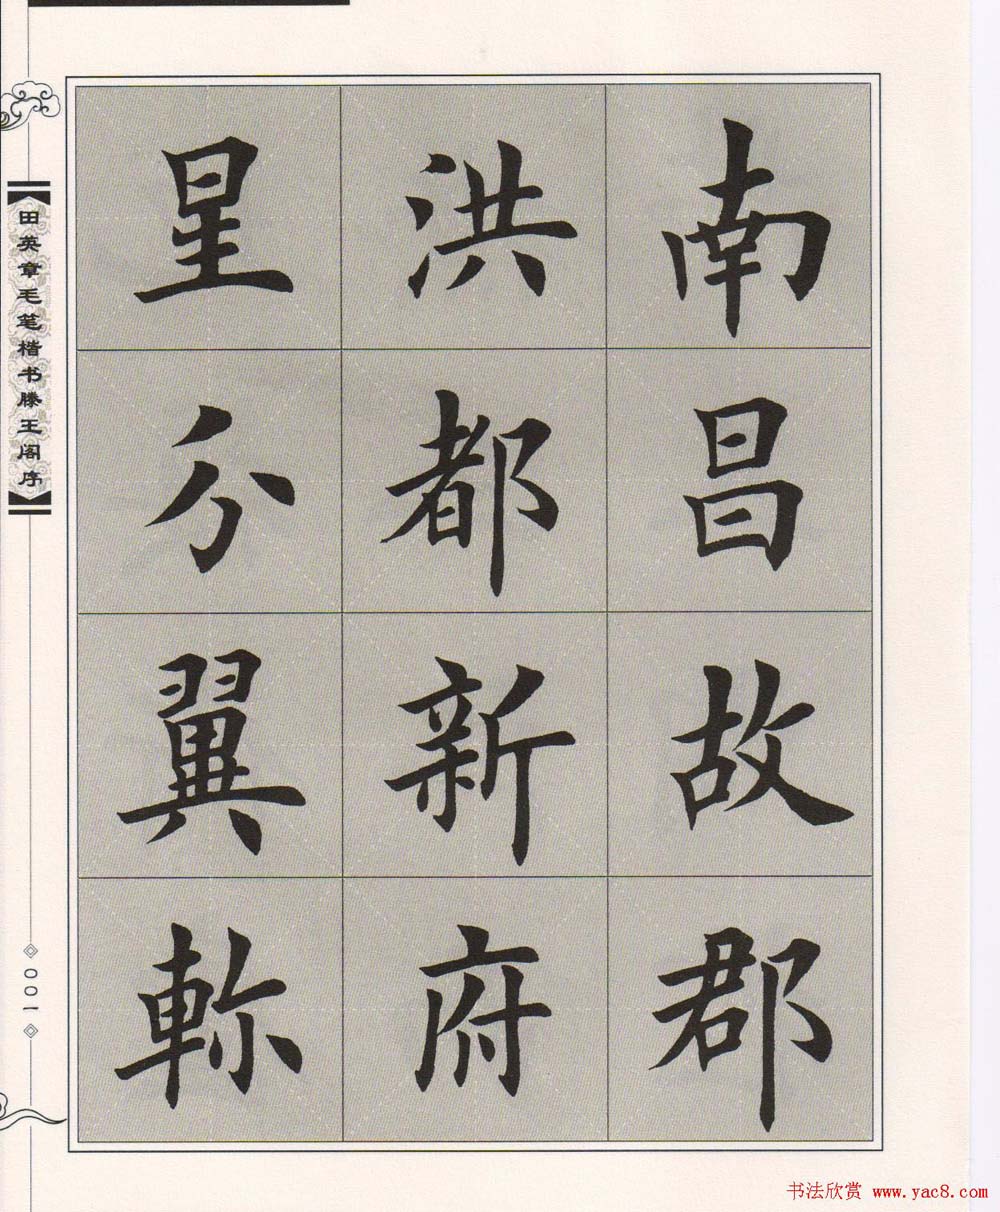 南昌故郡
洪都新府
星分翼軫
田英章毛笔楷书滕王阁序
001
书法欣赏 www.yac8.com